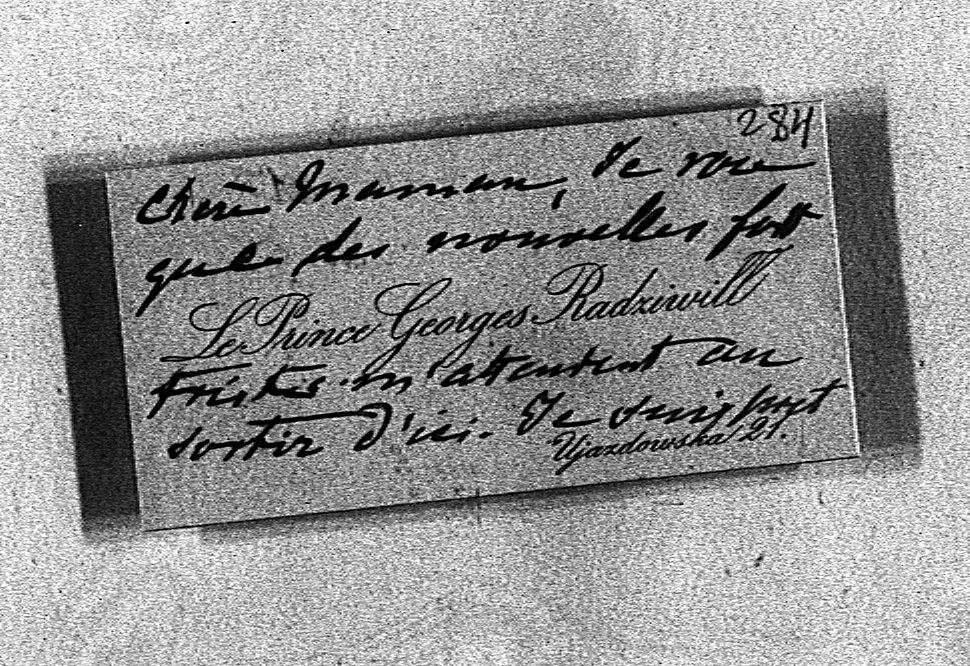 284
Chère Maman, Je vois
que des nouvelles fort
Le Prince Georges Radziwill
tristes m'attendent au
sortir d'ici. Je suis prêt
Ujazdowska 21.